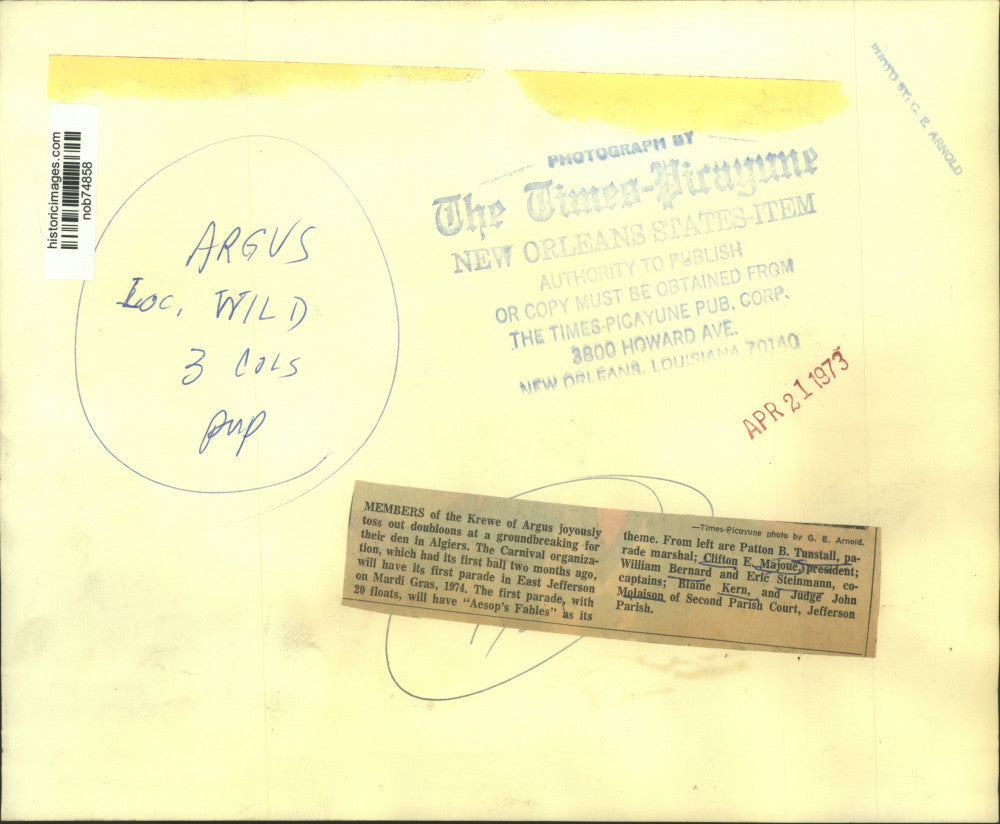 PHOTO BY: G. E. ARNOLD
historicimages.com
nob74858
PHOTOGRAPH BY
The Times-Picayune
NEW ORLEANS STATES-ITEM
AUTHORITY TO PUBLISH
OR COPY MUST BE OBTAINED FROM
THE TIMES-PICAYUNE PUB. CORP.
3800 HOWARD AVE.
NEW ORLEANS, LOUISIANA 70140
APR 21 1973
ARGUS
Loc, WILD
3 COLS
MEMBERS of the Krewe of Argus joyously
toss out doubloons at a groundbreaking for
their den in Algiers. The Carnival organiza-
tion, which had its first ball two months ago,
will have its first parade in East Jefferson
on Mardi Gras, 1974. The first parade, with
20 floats, will have “Aesop’s Fables” as its
—Times-Picayune photo by G. E. Arnold.
theme. From left are Patton B. Tunstall, pa-
rade marshal; Clifton E. Majoue, president;
William Bernard and Eric Steinmann, co-
captains; Blaine Kern, and Judge John
Molaison of Second Parish Court, Jefferson
Parish.